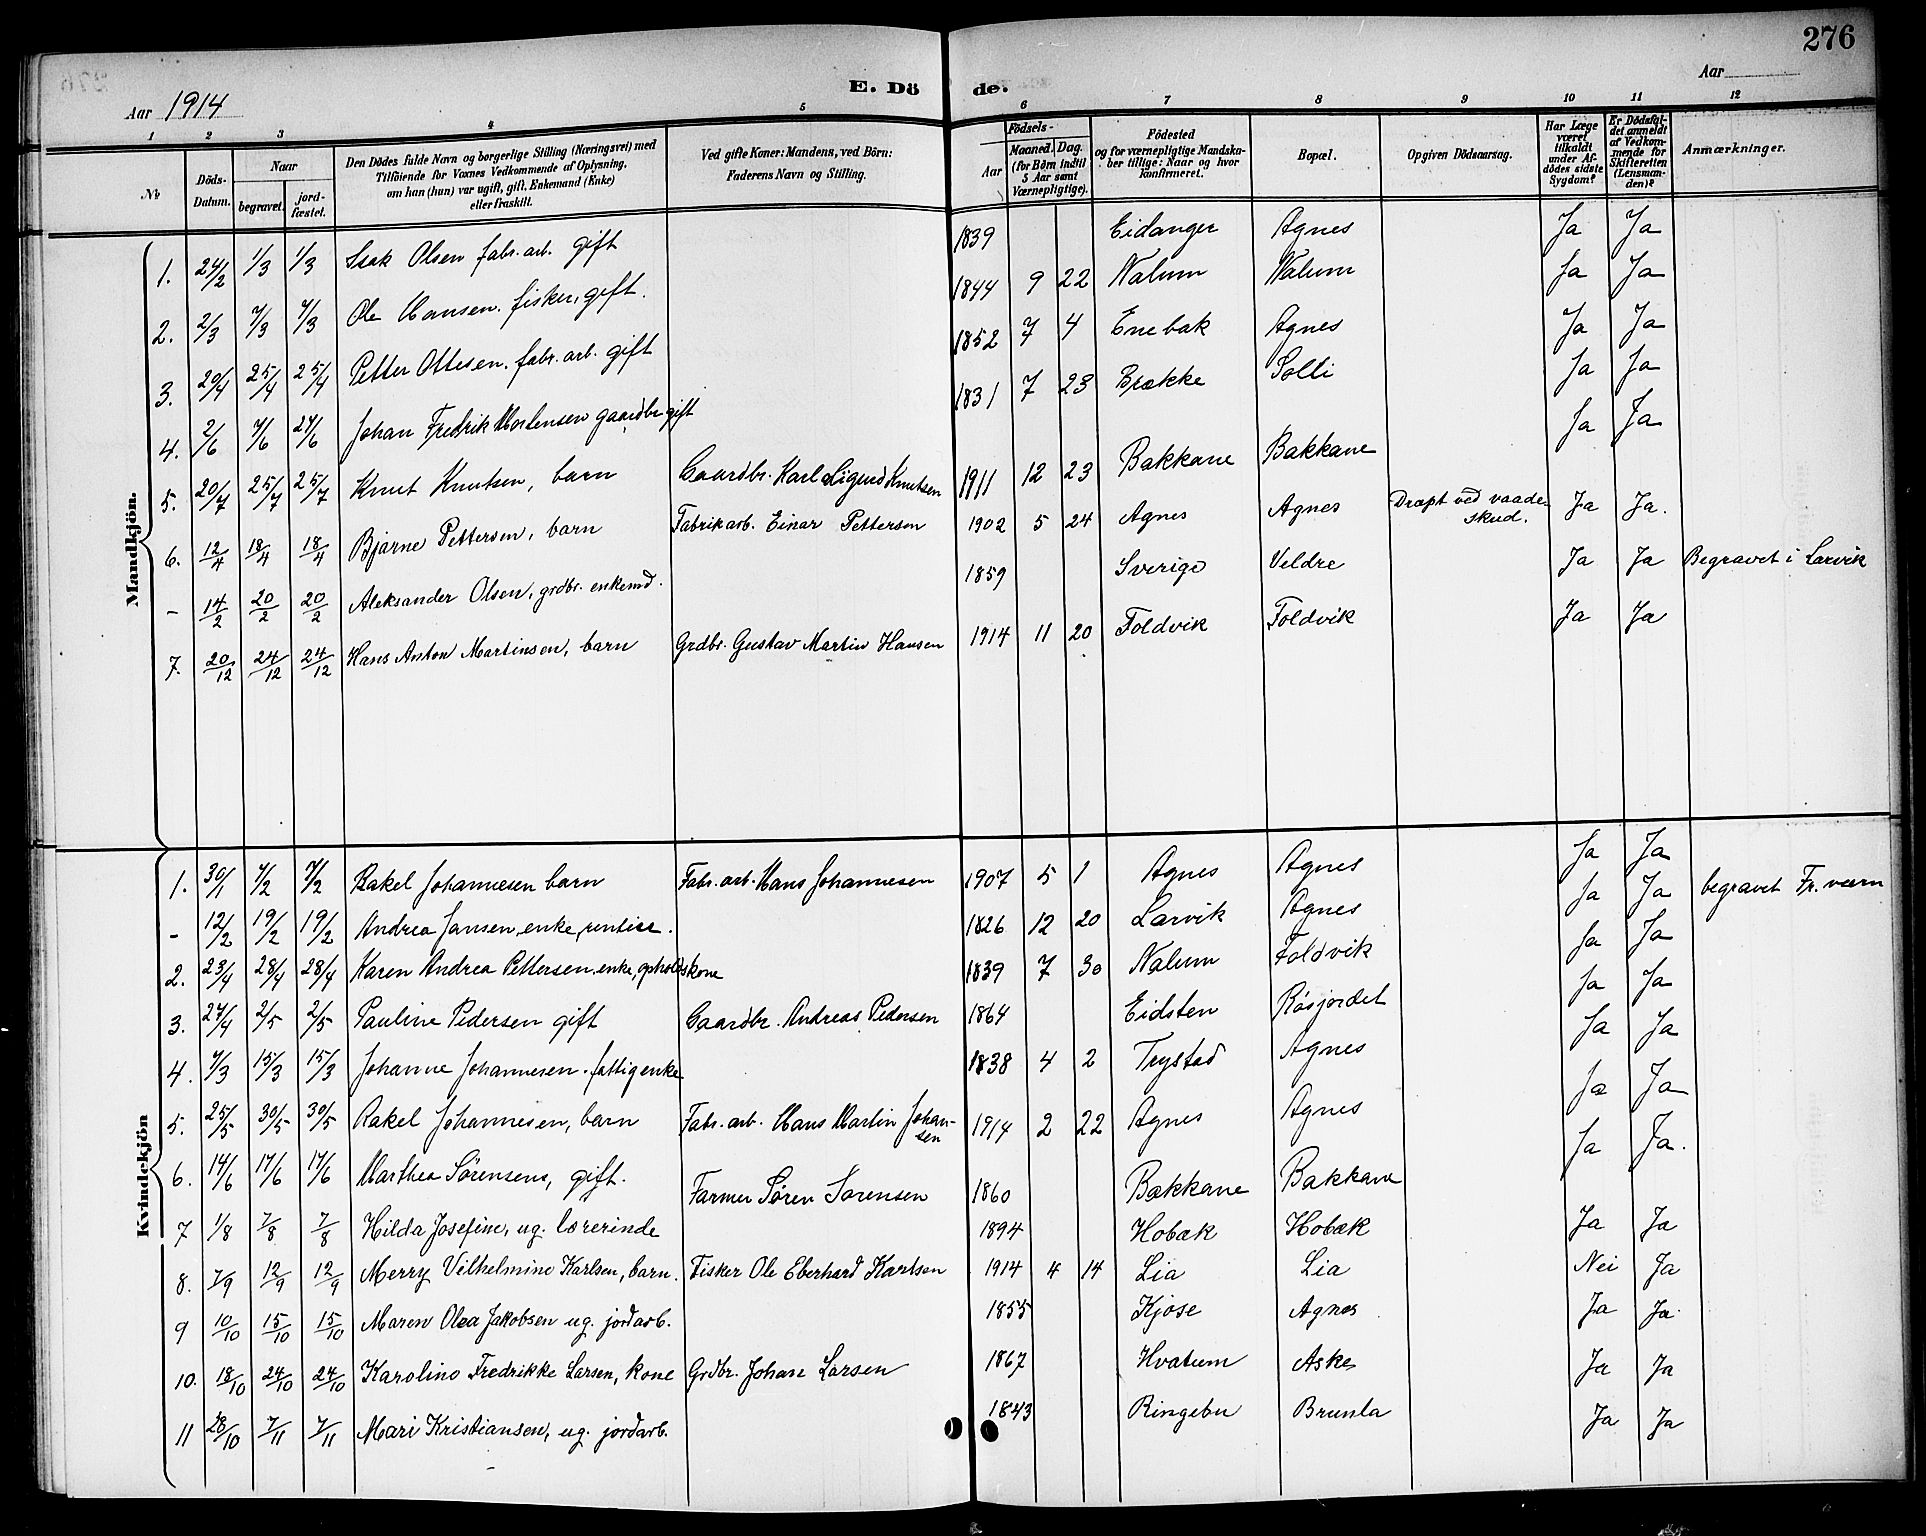 276
E. Döde.
Aar 1914
Aar
1 2 3 4 5 6 7 8 9 10 11 12
No
Döds-Datum.
Naar
begravet.
jord-fæstet.
Den Dödes fulde Navn og borgerlige Stilling (Næringsvei) med
Tilföiende for Voxnes Vedkommende af Oplysning,
om han (hun) var ugift, gift, Enkemand (Enke)
eller fraskilt.
Ved gifte Koner: Mandens, ved Börn:
Faderens Navn og Stilling.
Födsels-
Aar
Maaned. Dag.
(for Børn indtil
5 Aar samt
Værnepligtige).
Födested
og for værnepligtige Mandska-
ber tillige: Naar og hvor
konfirmeret.
Bopæl.
Opgiven Dödsaarsag.
Har Læge
været
tilkaldt
under Af-
dödes sidste
Sygdom?
Er Dödsfal-
det anmeldt
af Vedkom-
mende for
Skifteretten
(Lensman-
den)?
Anmærkninger.
Mandkjön.
1. 24/2 1/3 1/3 Isak Olsen fabr. arb. gift 1839 Eidanger Agnes Ja Ja
2. 2/3 7/3 7/3 Ole Hansen. fisker, gift. 1844 9 22 Nalum Nalum Ja Ja
3. 20/4 25/4 25/4 Petter Ottesen. fabr. arb. gift 1852 7 4 Enebak Agnes Ja Ja
4. 2/6 7/6 27/6 Johan Fredrik Mortensen gaardbr gift 1831 7 23 Brække Solli Ja Ja
5. 20/7 25/7 25/7 Knut Knutsen, barn Gaardbr. Karl Sigurd Knutsen 1911 12 23 Bakkane Bakkane Ja Ja
6. 12/4 18/4 18/4 Bjarne Pettersen, barn Fabrikarb. Einar Pettersen 1902 5 24 Agnes Agnes Dræpt ved vaade-
skud. Ja Ja.
- 14/2 20/2 20/2 Aleksander Olsen, grdbr. enkemd. 1859 Sverige Veldre Ja Ja Begravet i Larvik
7. 20/12 24/12 24/12 Hans Anton Martinsen, barn Grdbr. Gustav Martin Hansen 1914 11 20 Foldvik Foldvik Ja Ja
Kvindekjön
1. 30/1 7/2 7/2 Rakel Johannesen barn Fabr. arb. Hans Johannesen 1907 5 1 Agnes Agnes Ja Ja
- 12/2 19/2 19/2 Andrea Jansen, enke, rentier. 1826 12 20 Larvik Agnes Ja Ja begravet Fr. værn
2. 23/4 28/4 28/4 Karen Andrea Pettersen, enke, opholdskone 1839 7 30 Nalum Foldvik Ja Ja
3. 27/4 2/5 2/5 Pauline Pedersen gift Gaardbr. Andreas Pedersen 1864 Eidsten Råsjordet Ja Ja
4. 9/3 15/3 15/3 Johanne Johannesen. fattigenke 1838 4 2 Trystad Agnes Ja Ja
5. 25/5 30/5 30/5 Rakel Johannesen, barn Fabr. arb. Hans Martin Johan-
sen 1914 2 22 Agnes Agnes Ja Ja
6. 14/6 17/6 17/6 Marthea Sørensens, gift. Farmer Søren Sørensen 1860 Bakkane Bakkane Ja Ja.
7 1/8 7/8 7/8 Hilda Josefine, ug. lærerinde 1894 Hobæk Hobæk Ja Ja
8. 7/9 12/9 12/9 Merry Vilhelmine Karlsen, barn. Fisker Ole Eberhard Karlsen 1914 4 14 Lia Lia Nei Ja
9 10/10 15/10 15/10 Maren Olea Jakobsen ug. jordarb. 1855 Kjose Agnes Ja Ja
10. 18/10 24/10 24/10 Karoline Fredrikke Larsen, kone Grdbr. Johan Larsen 1867 Hvatum Aske Ja Ja
11 28/10 7/11 7/11 Mari Kristiansen, ug. jordarb. 1843 Ringebu Brunla Ja Ja